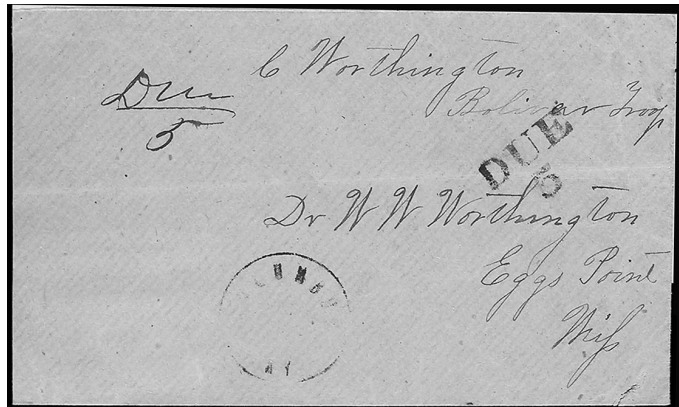 C Worthington
Bolivar Troop
Due
5
DUE
5
Dr W W Worthington
Eggs Point
Miss